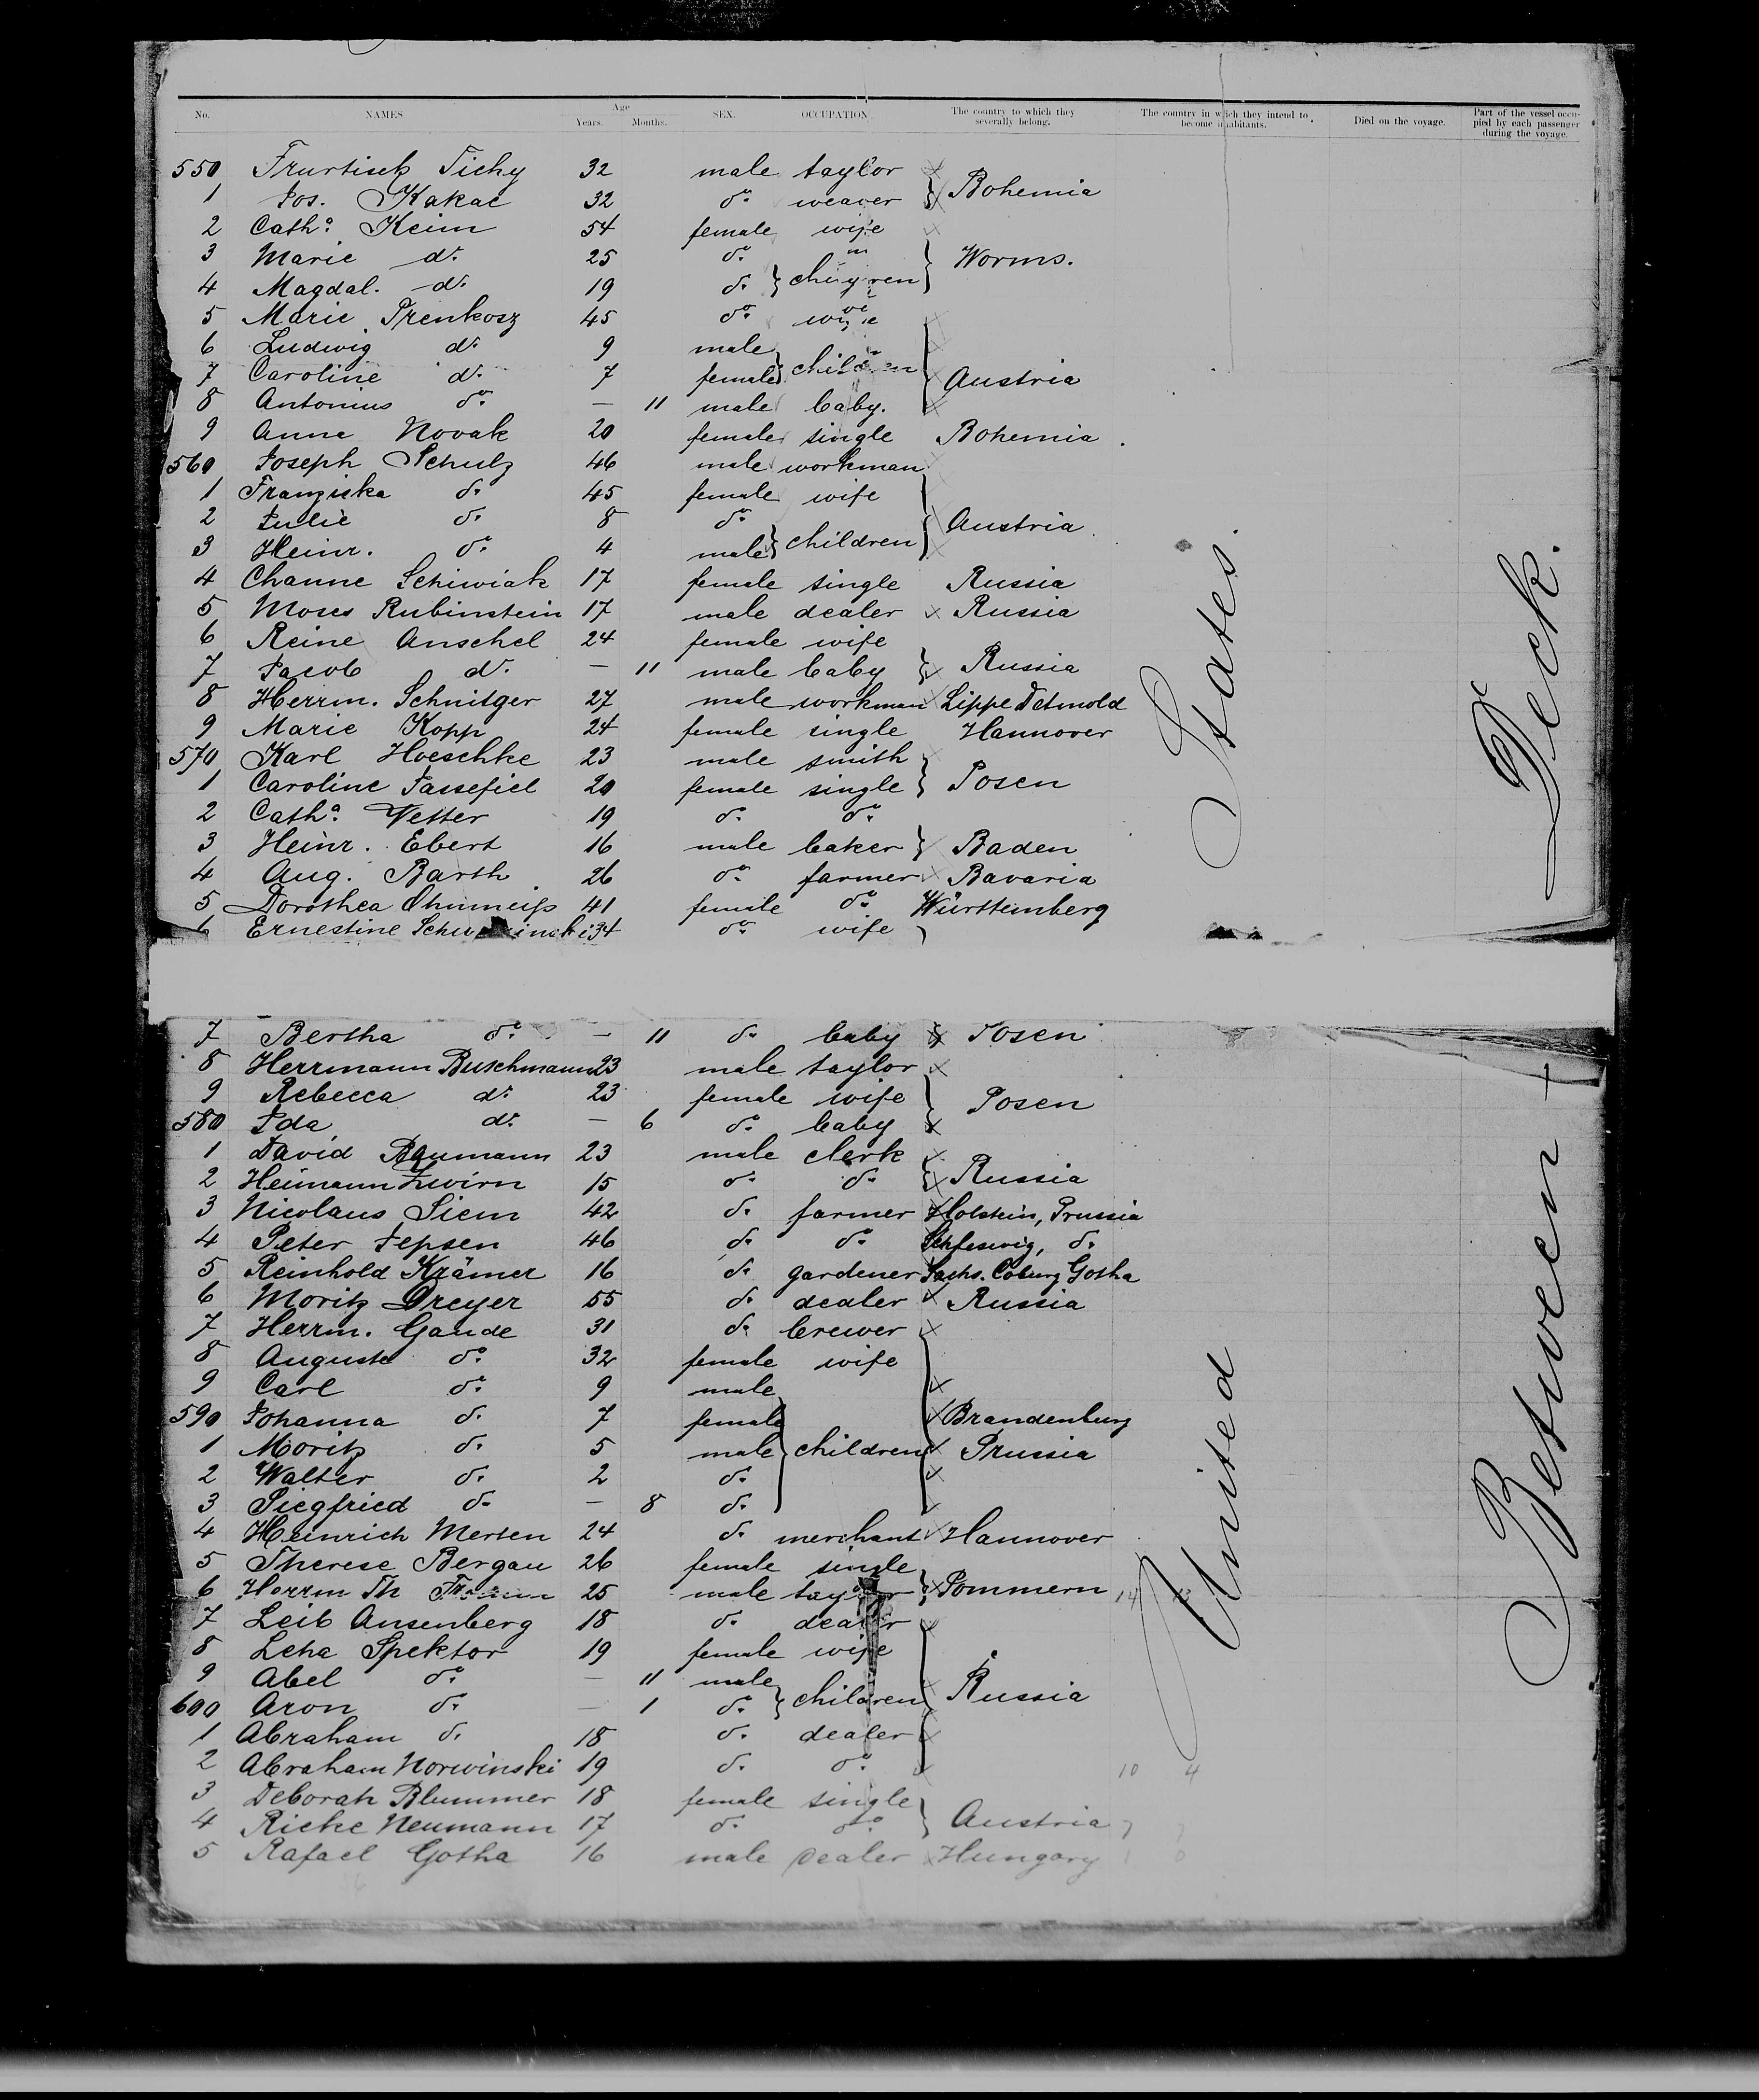 No. NAMES Age Years. Months. SEX. OCCUPATION. The country to which they severally belong. The country in which they intend to become inhabitants. Died on the voyage. Part of the vessel occupied by each passenger during the voyage.
550 Frurtisek Tichy 32 male taylor
1 Jos. Kakac 32 do. weaver } Bohemia
2 Catha. Keim 54 female wife
3 Marie do. 25 do.
4 Magdal. do. 19 do. } children } Worms.
5 Marie Trenkosz 45 do. wife
6 Ludwig do. 9 male
7 Caroline do. 7 female } children
8 Antonius do. — 11 male baby. } Austria
9 Anna Novak 20 female single Bohemia
560 Joseph Schulz 46 male workman
1 Franziska do. 45 female wife
2 Julie do. 8 do.
3 Heinr. do. 4 male } children } Austria
4 Channe Schiwiak 17 female single Russia
5 Moses Rubinstein 17 male dealer Russia
6 Reine Anschel 24 female wife
7 Jacob do. — 11 male baby } Russia
8 Herrm. Schnitger 27 male workman Lippe Detmold
9 Marie Kopp 24 female single Hannover
570 Karl Hoeschke 23 male smith
1 Caroline Jassefiel 20 female single } Posen
2 Catha. Vetter 19 do. do.
3 Heinr. Ebert 16 male baker } Baden
4 Aug. Barth 26 do. farmer Bavaria
5 Dorothea 41 female do. Württemberg
6 Ernestine 34 do. wife
7 Bertha do. — 11 do. baby } Posen
8 Herrmann Buschmann 23 male taylor
9 Rebecca do. 23 female wife
580 Ida do. — 6 do. baby } Posen
1 David Baumann 23 male clerk
2 Heimann Zwirn 15 do. do. } Russia
3 Nicolaus Siem 42 do. farmer Holstein, Prussia
4 Peter Jepsen 46 do. do. Schleswig, do.
5 Reinhold Krämer 16 do. gardener Sachs. Coburg Gotha
6 Moritz Dreyer 55 do. dealer Russia
7 Herrm. Gaude 31 do. brewer
8 Auguste do. 32 female wife
9 Carl do. 9 male
590 Johanna do. 7 female Brandenburg
1 Moritz do. 5 male } children Prussia
2 Walter do. 2 do.
3 Siegfried do. — 8 do.
4 Heinrich Merten 24 do. merchant Hannover
5 Therese Bergau 26 female single
6 Herrm Th 25 male taylor } Pommern 14
7 Leib Ansenberg 18 do. dealer
8 Leha Spektor 19 female wife
9 Abel do. — 11 male
600 Aron do. — 1 do. } children } Russia
1 Abraham do. 18 do. dealer
2 Abraham Norwinski 19 do. do. 10 4
3 Deborah Blummer 18 female single
4 Rieke Neumann 17 do. do. } Austria
5 Rafael Gotha 16 male dealer Hungary
United States.
Between Deck.